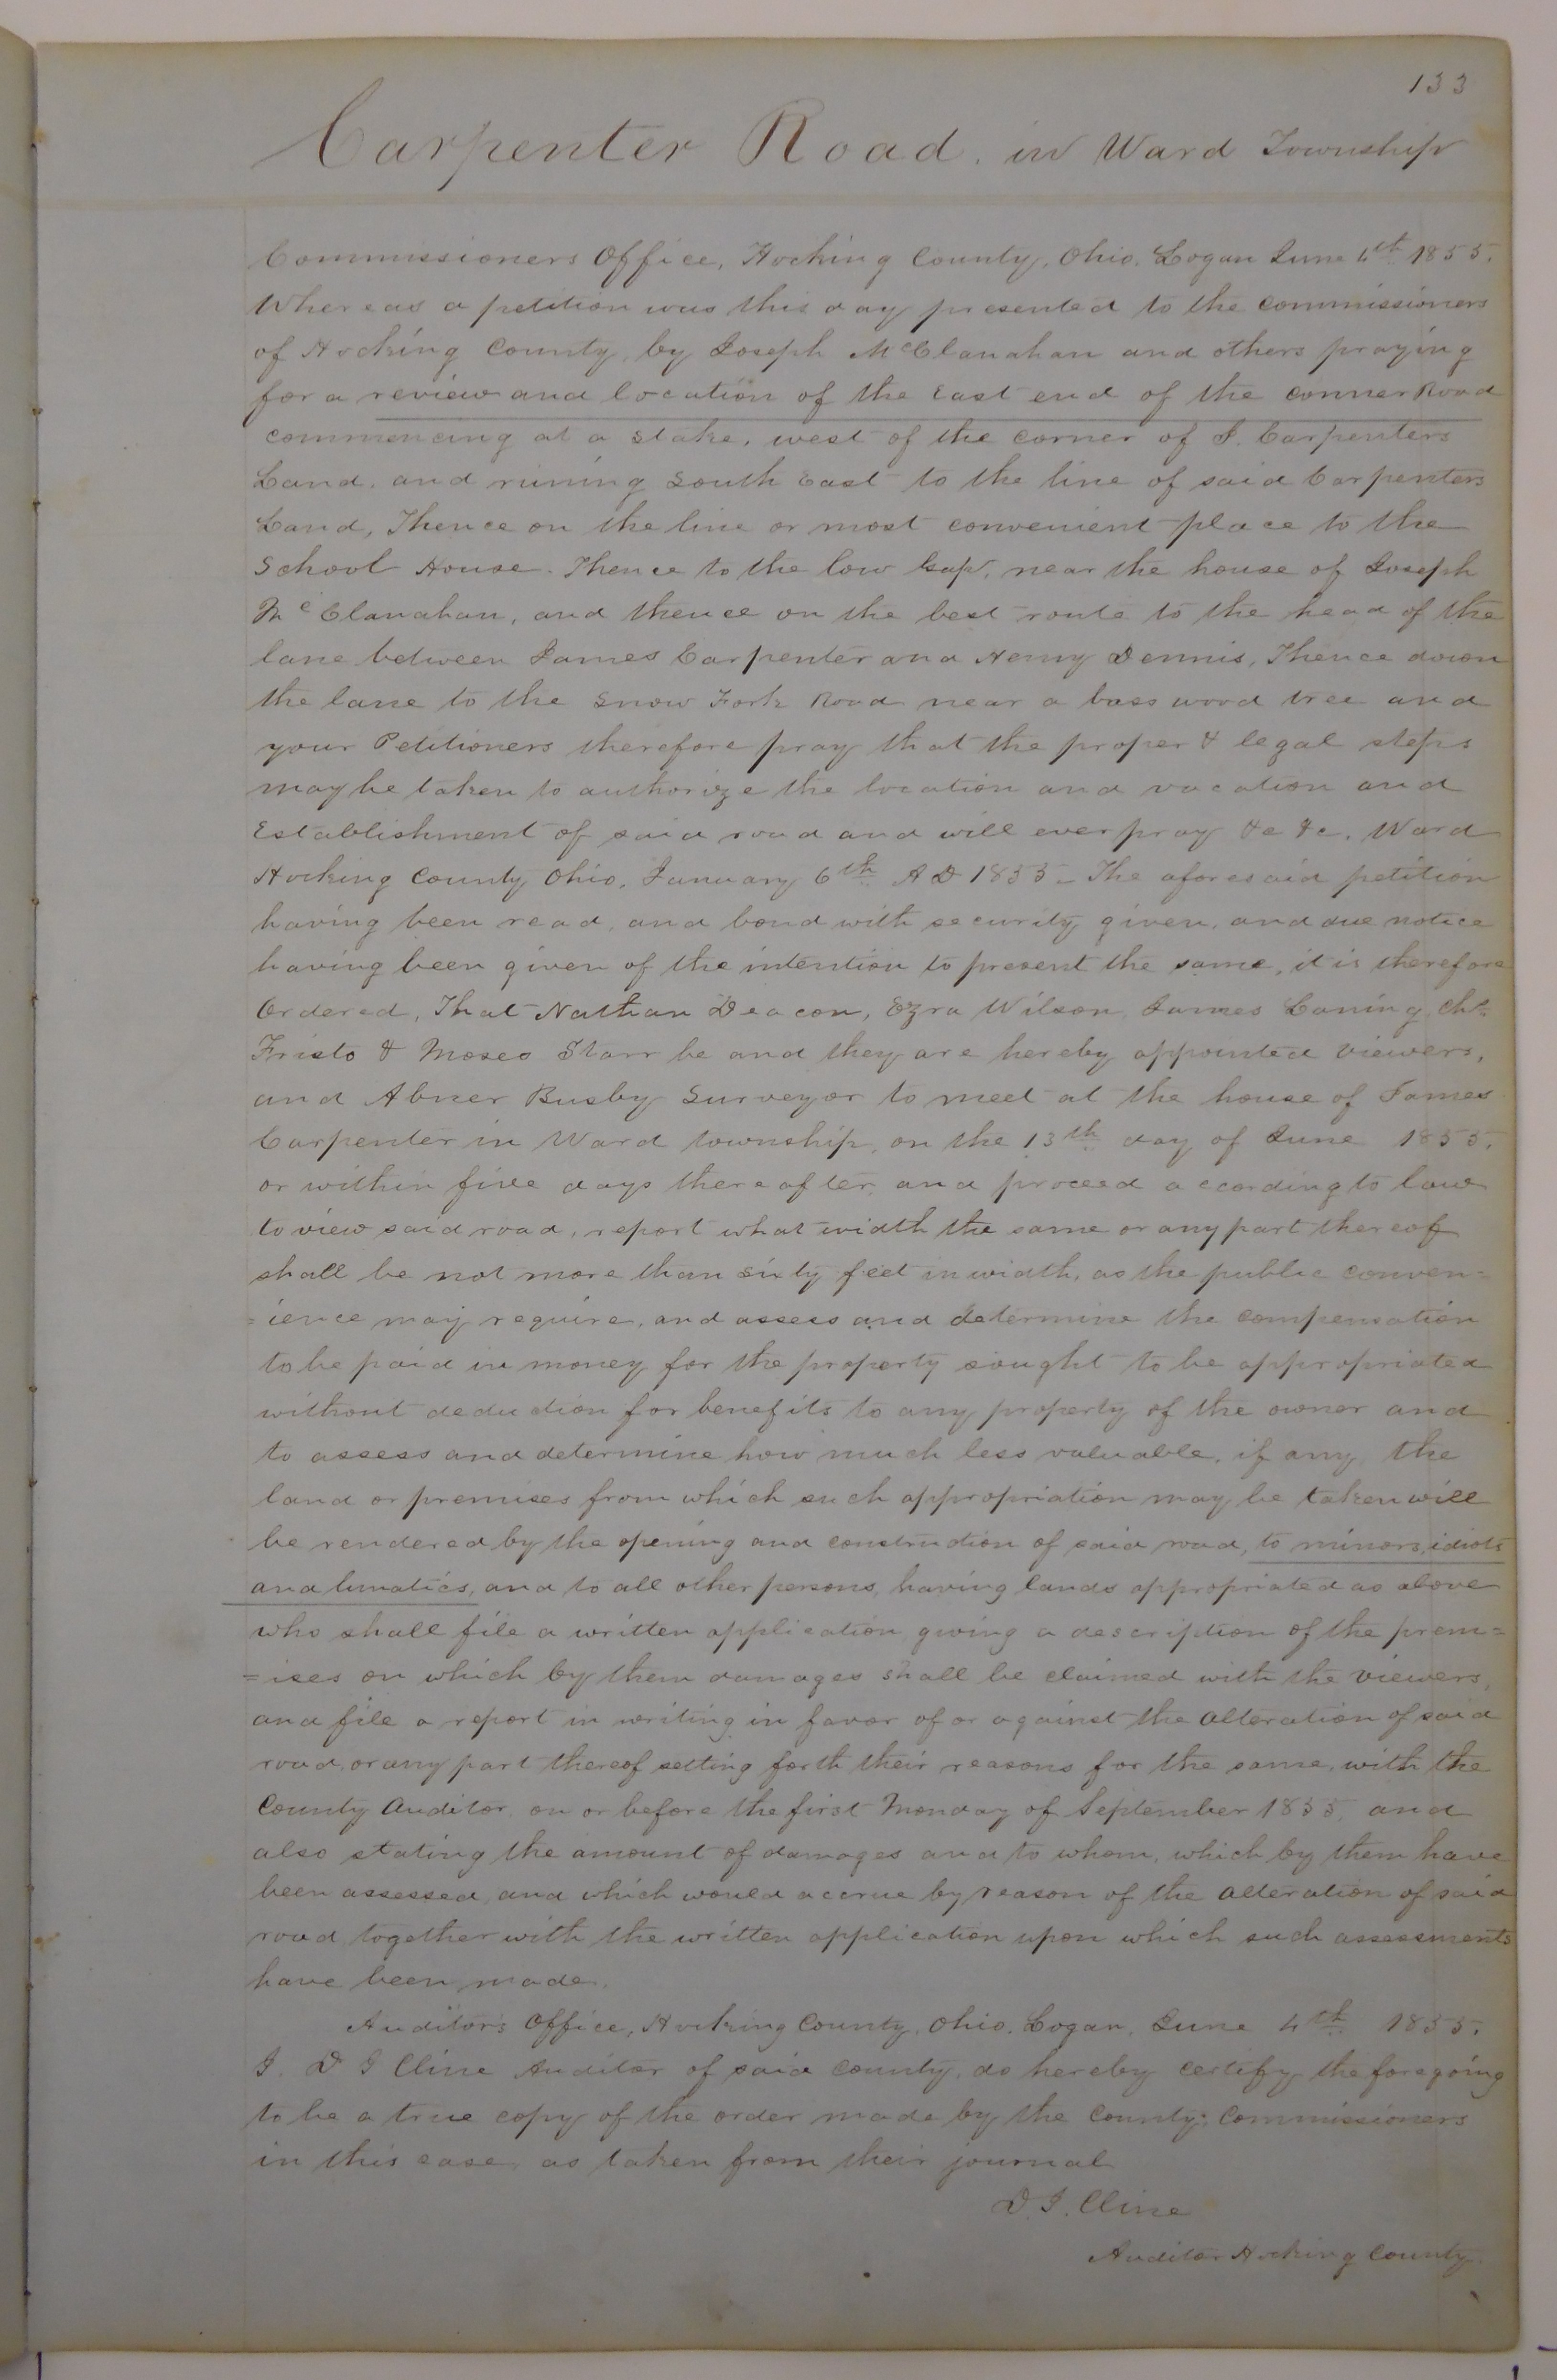 133
Carpenter Road. in Ward Township
Commissioners Office, Hocking County, Ohio. Logan June 4th 1855.
Whereas a petition was this day presented to the commissioners
of Hocking County, by Joseph McClanahan and others praying
for a review and location of the East end of the conner Road
commencing at a stake, west of the corner of J. Carpenters
Land, and runing South East to the line of said Carpenters
Land, Thence on the line or most convenient place to the
School House. Thence to the low Gap, near the house of Joseph
McClanahan, and thence on the best route to the head of the
lane between James Carpenter and Henry Dennis, Thence down
the lane to the Snow Fork Road near a bass wood tree and
your Petitioners therefore pray that the proper & legal steps
may be taken to authorize the location and vacation and
Establishment of said road and will ever pray &c &c. Ward
Hocking County Ohio, January 6th A D 1855 - The aforesaid petition
having been read, and bond with security given, and due notice
having been given of the intention to present the same, it is therefore
Ordered, That Nathan Deacon, Ezra Wilson, James Laning, Chs
Fristo & Moses Starr be and they are hereby appointed viewers,
and Abner Busby Surveyor to meet at the house of James
Carpenter in Ward township, on the 13th day of June 1855.
or within five days thereafter and proceed according to law
to view said road, report what width the same or any part thereof
shall be not more than sixty feet in width, as the public conven=
=ience may require, and assess and determine the compensation
to be paid in money for the property sought to be appropriated
without deduction for benefits to any property of the owner and
to assess and determine how much less valuable, if any, the
land or premises from which such appropriation may be taken will
be rendered by the opening and construction of said road, to minors, idiots
and lunatics, and to all other persons, having lands appropriated as above
who shall file a written application giving a description of the prem=
=ises on which by them damages shall be claimed with the viewers,
and file a report in writing in favor of or against the alteration of said
road, or any part thereof setting forth their reasons for the same, with the
County Auditor, on or before the first Monday of September 1855, and
also stating the amount of damages and to whom, which by them have
been assessed and which would accrue by reason of the alteration of said
road together with the written application upon which such assessments
have been made.
Auditor's Office, Hocking County, Ohio. Logan, June 4th 1855.
I. D J Cline Auditor of said County, do hereby certify the foregoing
to be a true copy of the order made by the County Commissioners
in this case, as taken from their journal
D. J. Cline
Auditor Hocking County